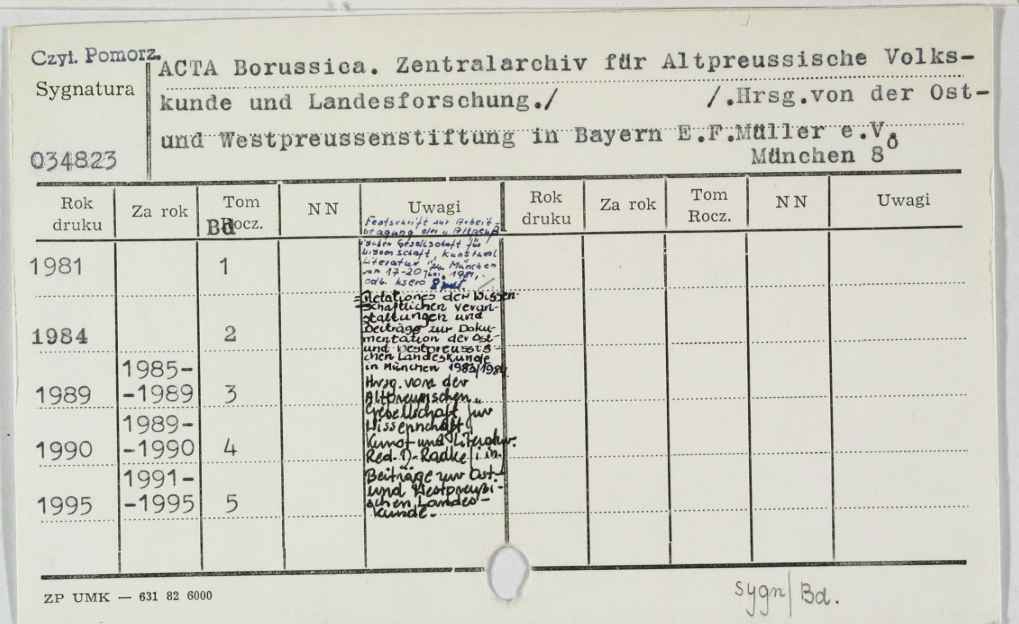 Czyt. Pomorz.
Sygnatura
034823
ACTA Borussica. Zentralarchiv für Altpreussische Volks-
kunde und Landesforschung./ /.Hrsg.von der Ost-
und Westpreussenstiftung in Bayern E.F.Müller e.V.
München 8°
Rok druku Za rok Tom Rocz. Bd NN Uwagi Rok druku Za rok Tom Rocz. NN Uwagi
1981 1
Festschrift zur Arbeit
tagung der Altpreuß
ischen Gesellschaft für
Wissenschaft, Kunst und
Literatur in München
17-20 Juni, 1981,
odb. ksero
1984 2
Relationes der Wissen-
schaftlichen veran-
staltungen und
Beiträge zur Doku-
mentation der Ost-
und Westpreussis-
chen Landeskunde
in München 1983/1984
1989 1985-
-1989 3
Hrsg. von der
Altpreussischen
Gesellschaft für
Wissenschaft
Kunst und Literatur.
Red. D. Radke i in.
1990 1989-
-1990 4
1995 1991-
-1995 5
Beiträge zur Ost-
und Westpreußi-
schen Landes-
kunde.
ZP UMK — 631 82 6000
sygn/Bd.